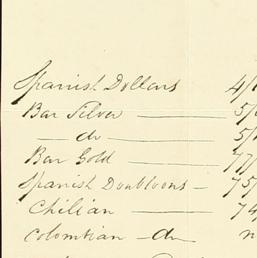 Spanish Dollars 4/
Bar Silver — 5/
— do — 5/
Bar Gold — 77/
Spanish Doubloons – 75/
Chilian — 74/
Colombian – do —